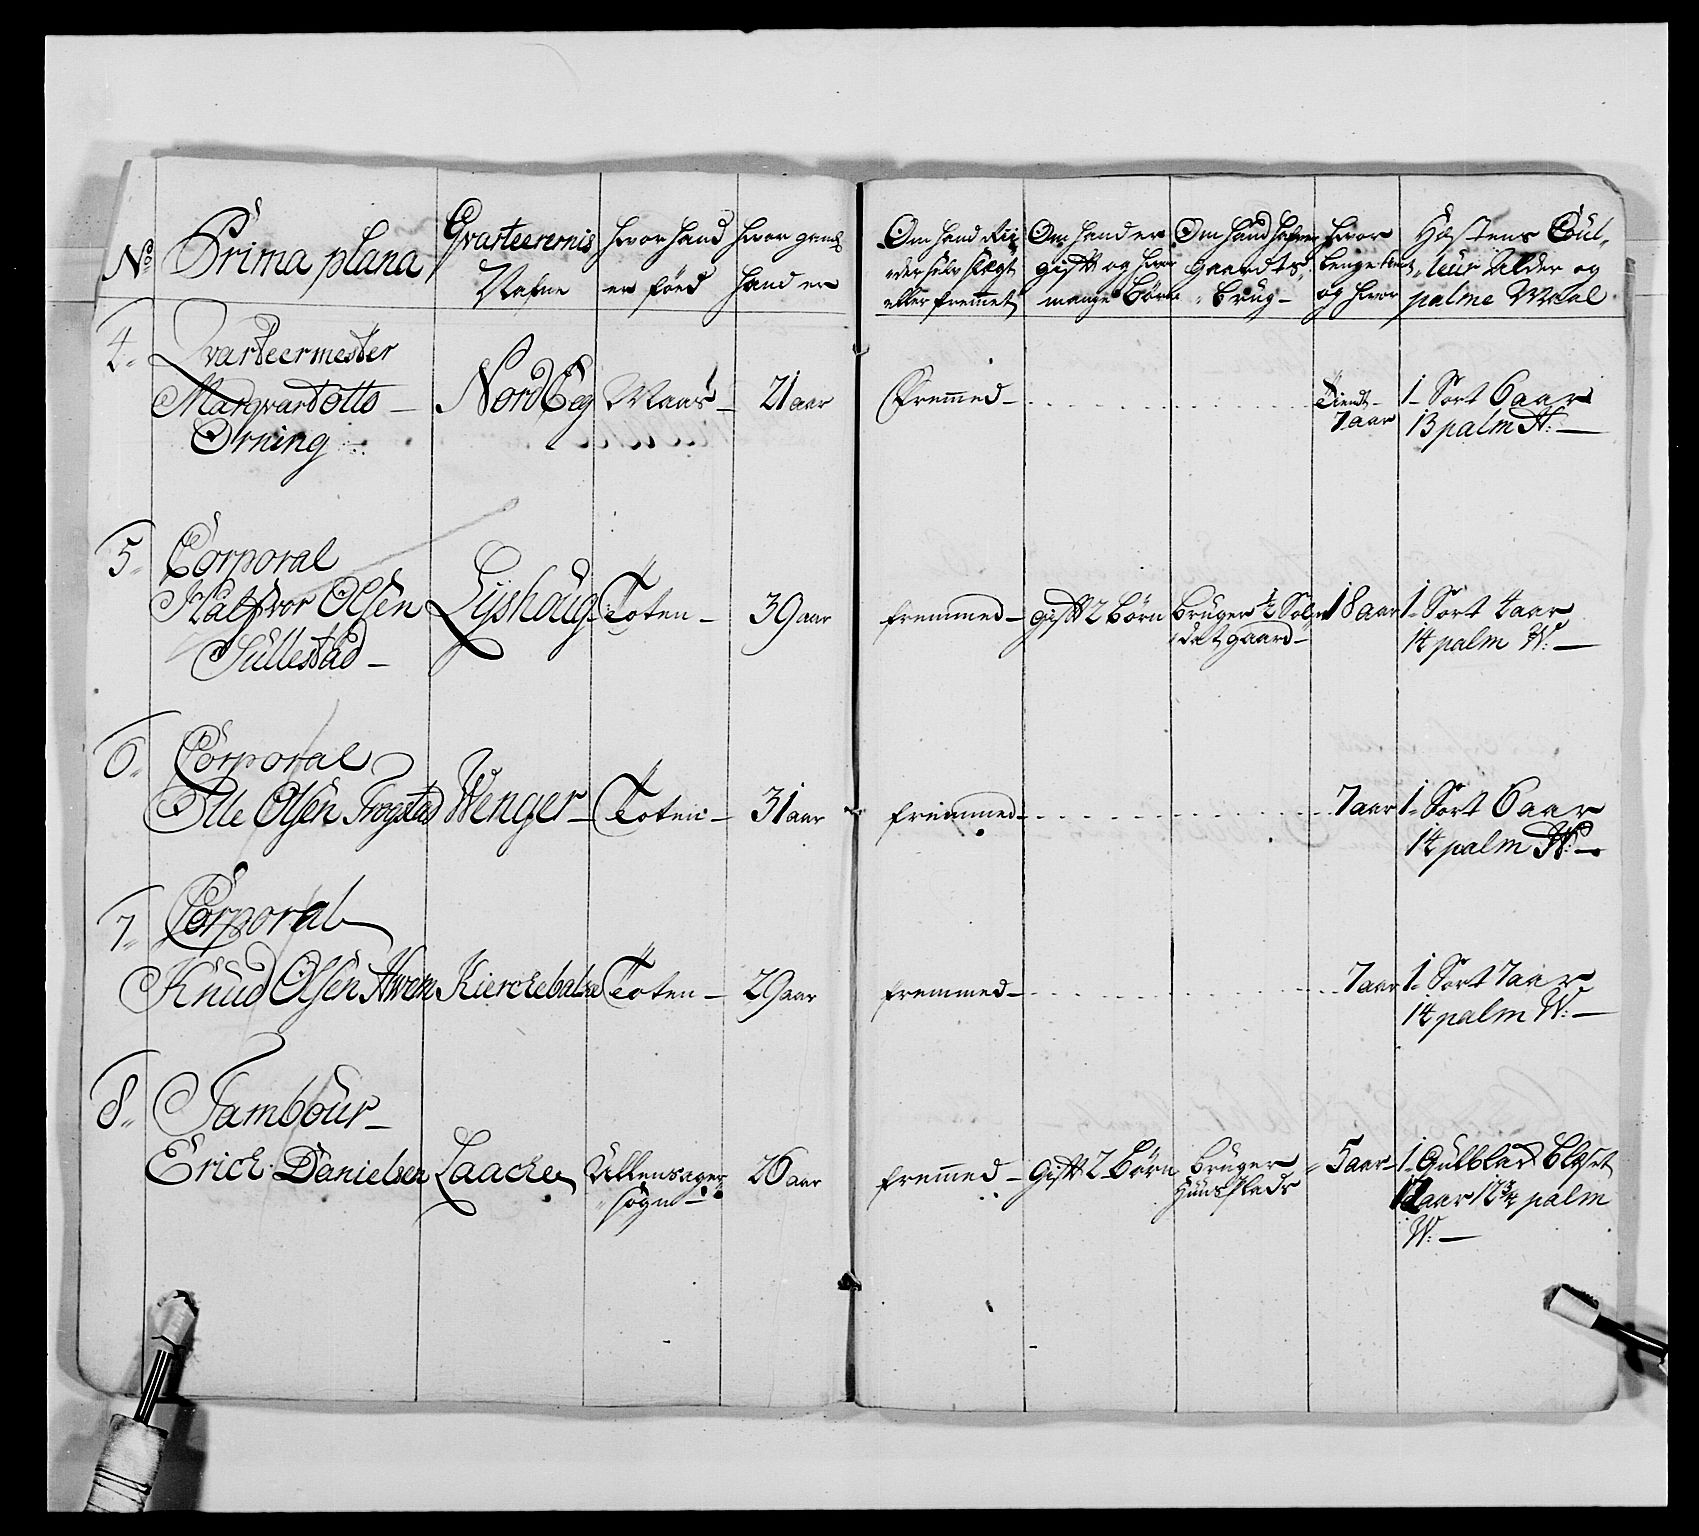 No Prima plana
Qvarteerernis Nafne
hvor hand er föed
hvor gaml hand er
Om hand
eller fremmet
Om hand er gift og hvor mange Börn
Om hand hafver Gaardts brug
hvor lenge tient og hvor
Hæstens Coul-
leur Alder og
palme Maal
4. Qvarteermester
Marqvard Otto Örning NordEeg 21 aar Fremmed tient 7 aar 1 Sort 6 aar
13 palm H:
5. Corporal
Halfvor Olsen Sullestad Lijshöug Toten 39 aar fremmed gift 2 börn bruger 1/2 18 aar 1 Sort 4 aar
14 palm W:
6. Corporal
Olle Olsen Frogstad Wenger Toten 31 aar fremmed 7 aar 1 Sort 6 aar
14 palm W:
7. Corporal
Knud Olsen Hvem Toten 29 aar fremmed 7 aar 1 Sort 7 aar
14 palm W:
8. Tambour
Erich Danielsen Laache Ullensager sogn 26 aar fremmed gift 2 börn bruger Huus Plads 5 aar 1 Gulblad Blæset
12 aar 12 3/4 palm
W: